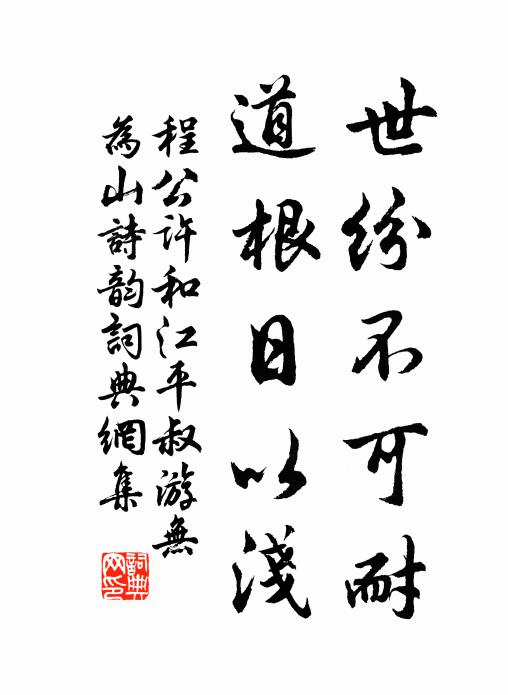 世纷不可耐
道根日以淺
程公许和江平叔游無
為山詩韵詞典網集
詞典网印